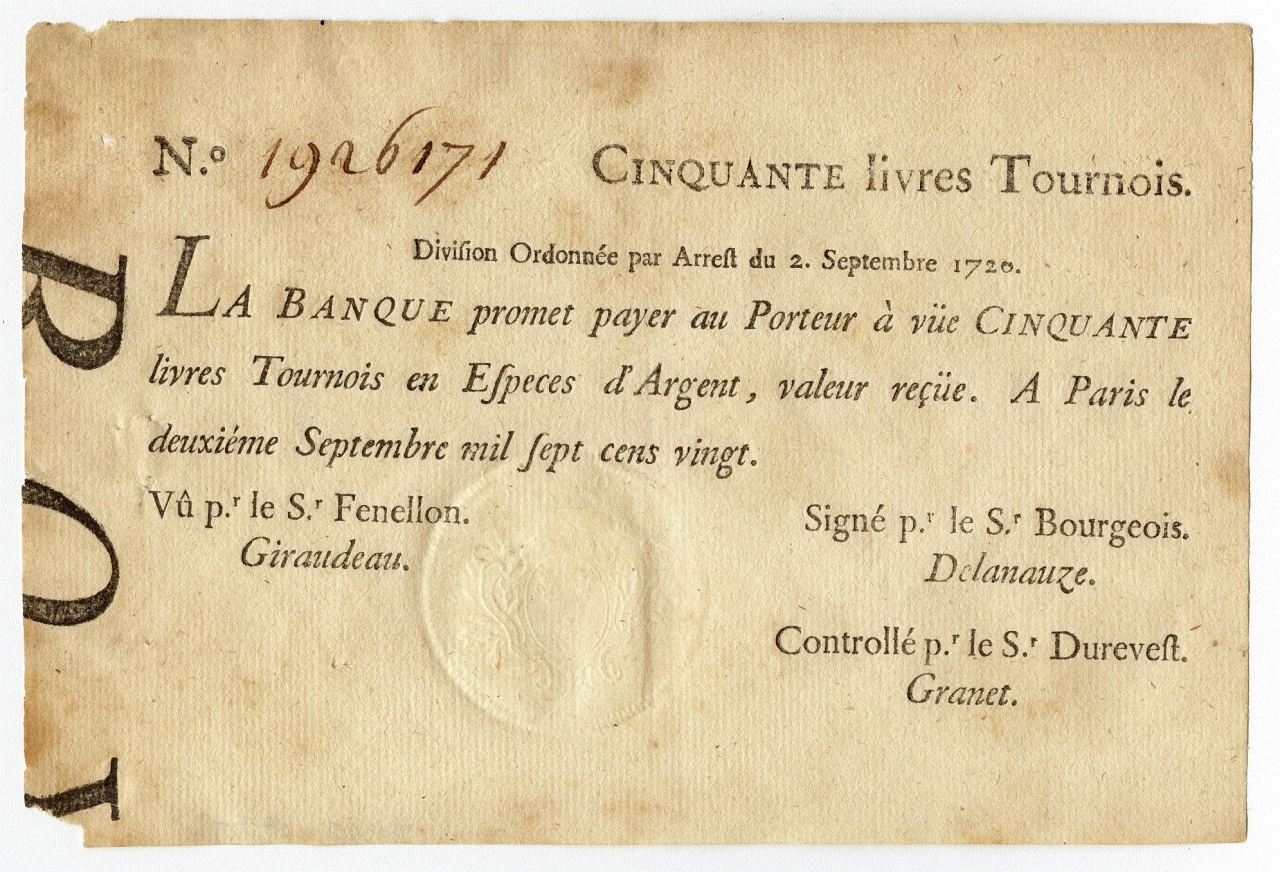 N.º 1926171 CINQUANTE livres Tournois.
Diviſion Ordonnée par Arreſt du 2. Septembre 1720.
LA BANQUE promet payer au Porteur à vüe CINQUANTE
livres Tournois en Eſpeces d'Argent, valeur reçüe. A Paris le
deuxiéme Septembre mil ſept cens vingt.
Vû p.ʳ le S.ʳ Fenellon.
Giraudeau.
Signé p.ʳ le S.ʳ Bourgeois.
Delanauze.
Controllé p.ʳ le S.ʳ Dureveſt.
Granet.